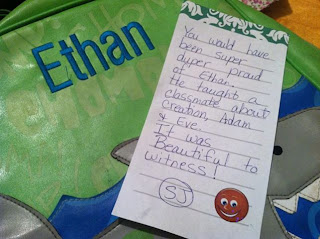 Ethan
You would have
been super
duper proud
of Ethan.
He taught a
classmate about
Creation, Adam
& Eve.
It was
Beautiful to
witness!
SJ